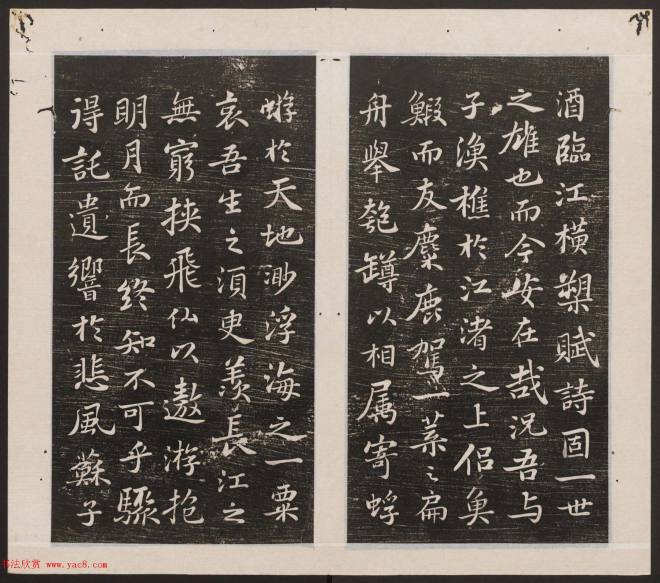 酒臨江橫槊賦詩固一世
之雄也而今安在哉況吾与
子漁樵於江渚之上侣魚
鰕而友麋鹿駕一葉之扁
舟舉匏罇以相属寄蜉
蝣於天地渺浮海之一粟
哀吾生之須臾羨長江之
無窮挾飛仙以遨游抱
明月而長終知不可乎驟
得託遺響於悲風蘇子
书法欣赏 www.yac8.com